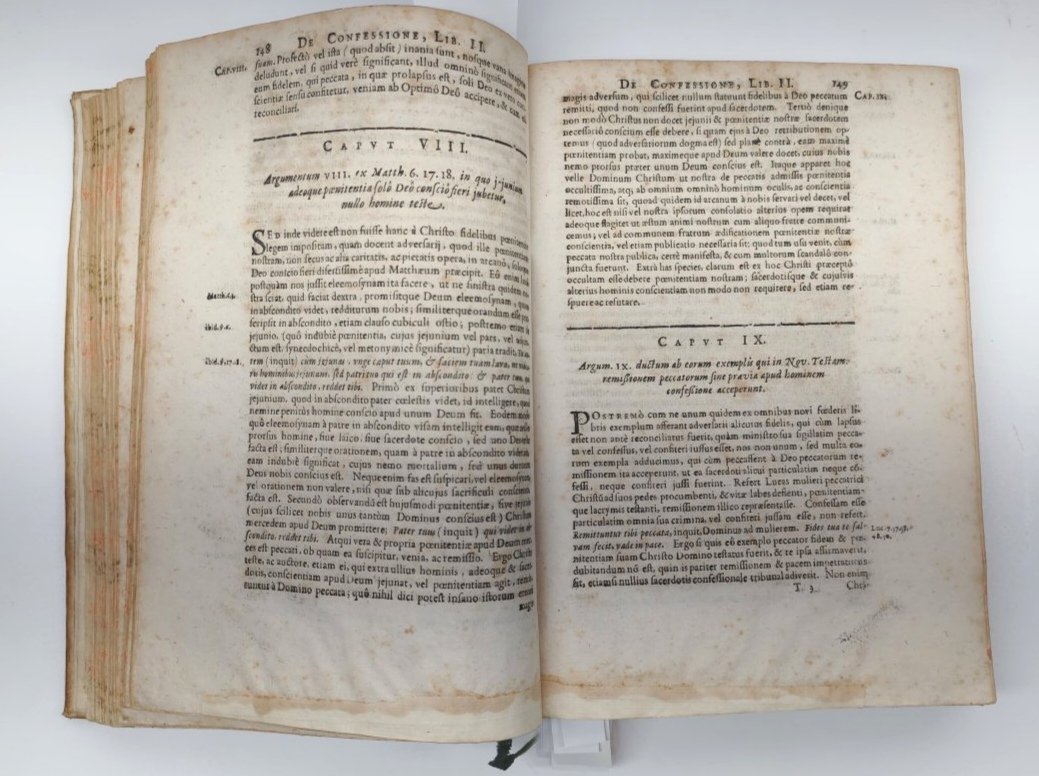 148 DE CONFESSIONE, LIB. II.
CAP. VIII. suam. Profectò vel ista (quod absit) inania sunt, nosque vana
deludunt, vel si quid verè significant, illud omninò significant
eum fidelem, qui peccata, in quæ prolapsus est, soli Deo ex vero con-
scientiæ sensu confitetur, veniam ab Optimô Deô accipere, & cum eô
reconciliari.
CAPVT VIII.
Argumentum VIII. ex Matth. 6. 17. 18. in quo jejunium
adeoque pœnitentia solô Deô consciô fieri jubetur,
nullo homine teste.
SED inde videre est non fuisse hanc à Christo fidelibus pœnitendi
legem impositam, quam docent adversarij, quod ille pœnitentiam
nostram, non secus ac alia caritatis, ac pietatis opera, in arcanô, solo
Deo conscio fieri disertissimè apud Matthæum præcipit. Eô enim
postquàm nos jussit eleemosynam ita facere, ut ne sinistra quidem no-
Matth. 6. 4. stra sciat, quid faciat dextra, promisitque Deum eleemosynam, quam
in abscondito videt, redditurum nobis; similiterque orandum esse præ-
ibid. ℣. 6. scripsit in abscondito, etiam clauso cubiculi ostio; postremo etiam de
jejunio, (quo indubiè pœnitentia, cujus jejunium vel pars, vel
ctum est, synecdochicè, vel metonymicè significatur) paria tradit.
ibid. ℣. 17. 18. tem (inquit) cùm jejunas, unge caput tuum, & faciem tuam lava, ne videa-
ris hominibus jejunans, sed patri tuo qui est in abscondito: & pater tuus, qui
videt in abscondito, reddet tibi. Primò ex superioribus patet Christum
jejunium, quod in abscondito pater cœlestis videt, id intelligere, quod
nemine penitùs homine conscio apud unum Deum fit. Eodem modo
quô eleemosynam à patre in abscondito visam intelligit eam, quæ nullo
prorsus homine, sive laico, sive sacerdote conscio, sed uno Deo teste
facta est, similiterque orationem, quam à patre in abscondito videri
eam indubiè significat, cujus nemo mortalium, sed unus duntaxat
Deus nobis conscius est. Neque enim fas est suspicari, vel eleemosynam,
vel orationem non valere, nisi quæ sub alicujus sacrificuli conscientia
facta est. Secundò observandum est hujusmodi pœnitentiæ, sive jejunio
(cujus scilicet nobis unus tantùm Dominus conscius est) Christum
mercedem apud Deum promittere; Pater tuus (inquit) qui videt in ab-
scondito, reddet tibi. Atqui vera & propria pœnitentiæ apud Deum mer-
ces est peccati, ob quam ea suscipitur, venia, ac remissio. Ergo Christo
teste, ac auctore, etiam ei, qui extra ullius hominis, adeoque & sacer-
dotis, conscientiam apud Deum jejunat, vel pœnitentiam agit, remit-
tuntur à Domino peccata; quô nihil dici potest insano istorum errori
magis
DE CONFESSIONE, LIB. II. 149
magis adversum, qui scilicet nullum statuunt fidelibus à Deo peccatum CAP. IX.
remitti, quod non confessi fuerint apud sacerdotem. Tertiò denique
non modò Christus non docet jejunii & pœnitentiæ nostræ sacerdotem
necessariò conscium esse debere, si quam ejus à Deo retributionem op-
temus (quod adversariorum dogma est) sed planè contrà, eam maximè
pœnitentiam probat, maximeque apud Deum valere docet, cuius nobis
nemo prorsus præter unum Deum conscius est. Itaque apparet hoc
velle Dominum Christum ut nostra de peccatis admissis pœnitentia
occultissima, atq; ab omnium omninò hominum oculis, ac conscientia
remotissima sit, quoad quidem id arcanum à nobis servari vel decet, vel
licet, hoc est nisi vel nostra ipsorum consolatio alterius opem requirat
adeoque flagitet ut æstum animi nostrum cum aliquo fratre communi-
cemus; vel ad communem fratrum ædificationem pœnitentiæ nostræ
conscientia, vel etiam publicatio necessaria sit: quod tum usu venit, cùm
peccata nostra publica, certè manifesta, & cum multorum scandalô con-
juncta fuerunt. Extrà has species, clarum est ex hoc Christi præceptô
occultam esse debere pœnitentiam nostram; sacerdotisque & cujusvis
alterius hominis conscientiam non modò non requirere, sed etiam re-
spuere ac refutare.
CAPVT IX.
Argum. IX. ductum ab eorum exemplis qui in Nov. Testam.
remissionem peccatorum sine prævia apud hominem
confessione acceperunt.
POSTREMÒ cùm ne unum quidem ex omnibus novi fœderis li-
bris exemplum offerant adversarii alicuius fidelis, qui cùm lapsus
esset non antè reconciliatus fuerit, quàm ministro sua sigillatim pecca-
ta vel confessus, vel confiteri jussus esset, nos non unum, sed multa eo-
rum exempla adducimus, qui cùm peccassent à Deo peccatorum re-
missionem ita acceperunt, ut ea sacerdoti alicui particulatim neque cõ-
fessi, neque confiteri jussi fuerint. Refert Lucas mulieri peccatrici
Christô ad suos pedes procumbenti, & vitæ labes deflenti, pœnitentiam-
que lacrymis testanti, remissionem illico repræsentasse. Confessam esse
particulatim omnia sua crimina, vel confiteri jussam esse, non refert.
Remittuntur tibi peccata, inquit Dominus ad mulierem. Fides tua te sal- Luc. 7. 37. 48.
vam fecit, vade in pace. Ergo si quis eô exemplo peccator fidem & pœ- & 50.
nitentiam suam Christo Domino testatus fuerit, & te ipsa affirmaverit,
dubitandum nõ est, quin is pariter remissionem & pacem impetraturus
sit, etiamsi nullius sacerdotis confessionale tribunal adverit. Non enim
T 3 Chri-